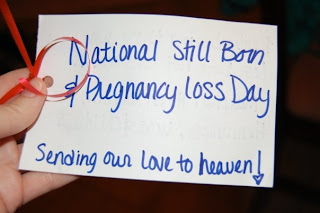 National Still Born
& Pregnancy Loss Day
Sending our Love to heaven!